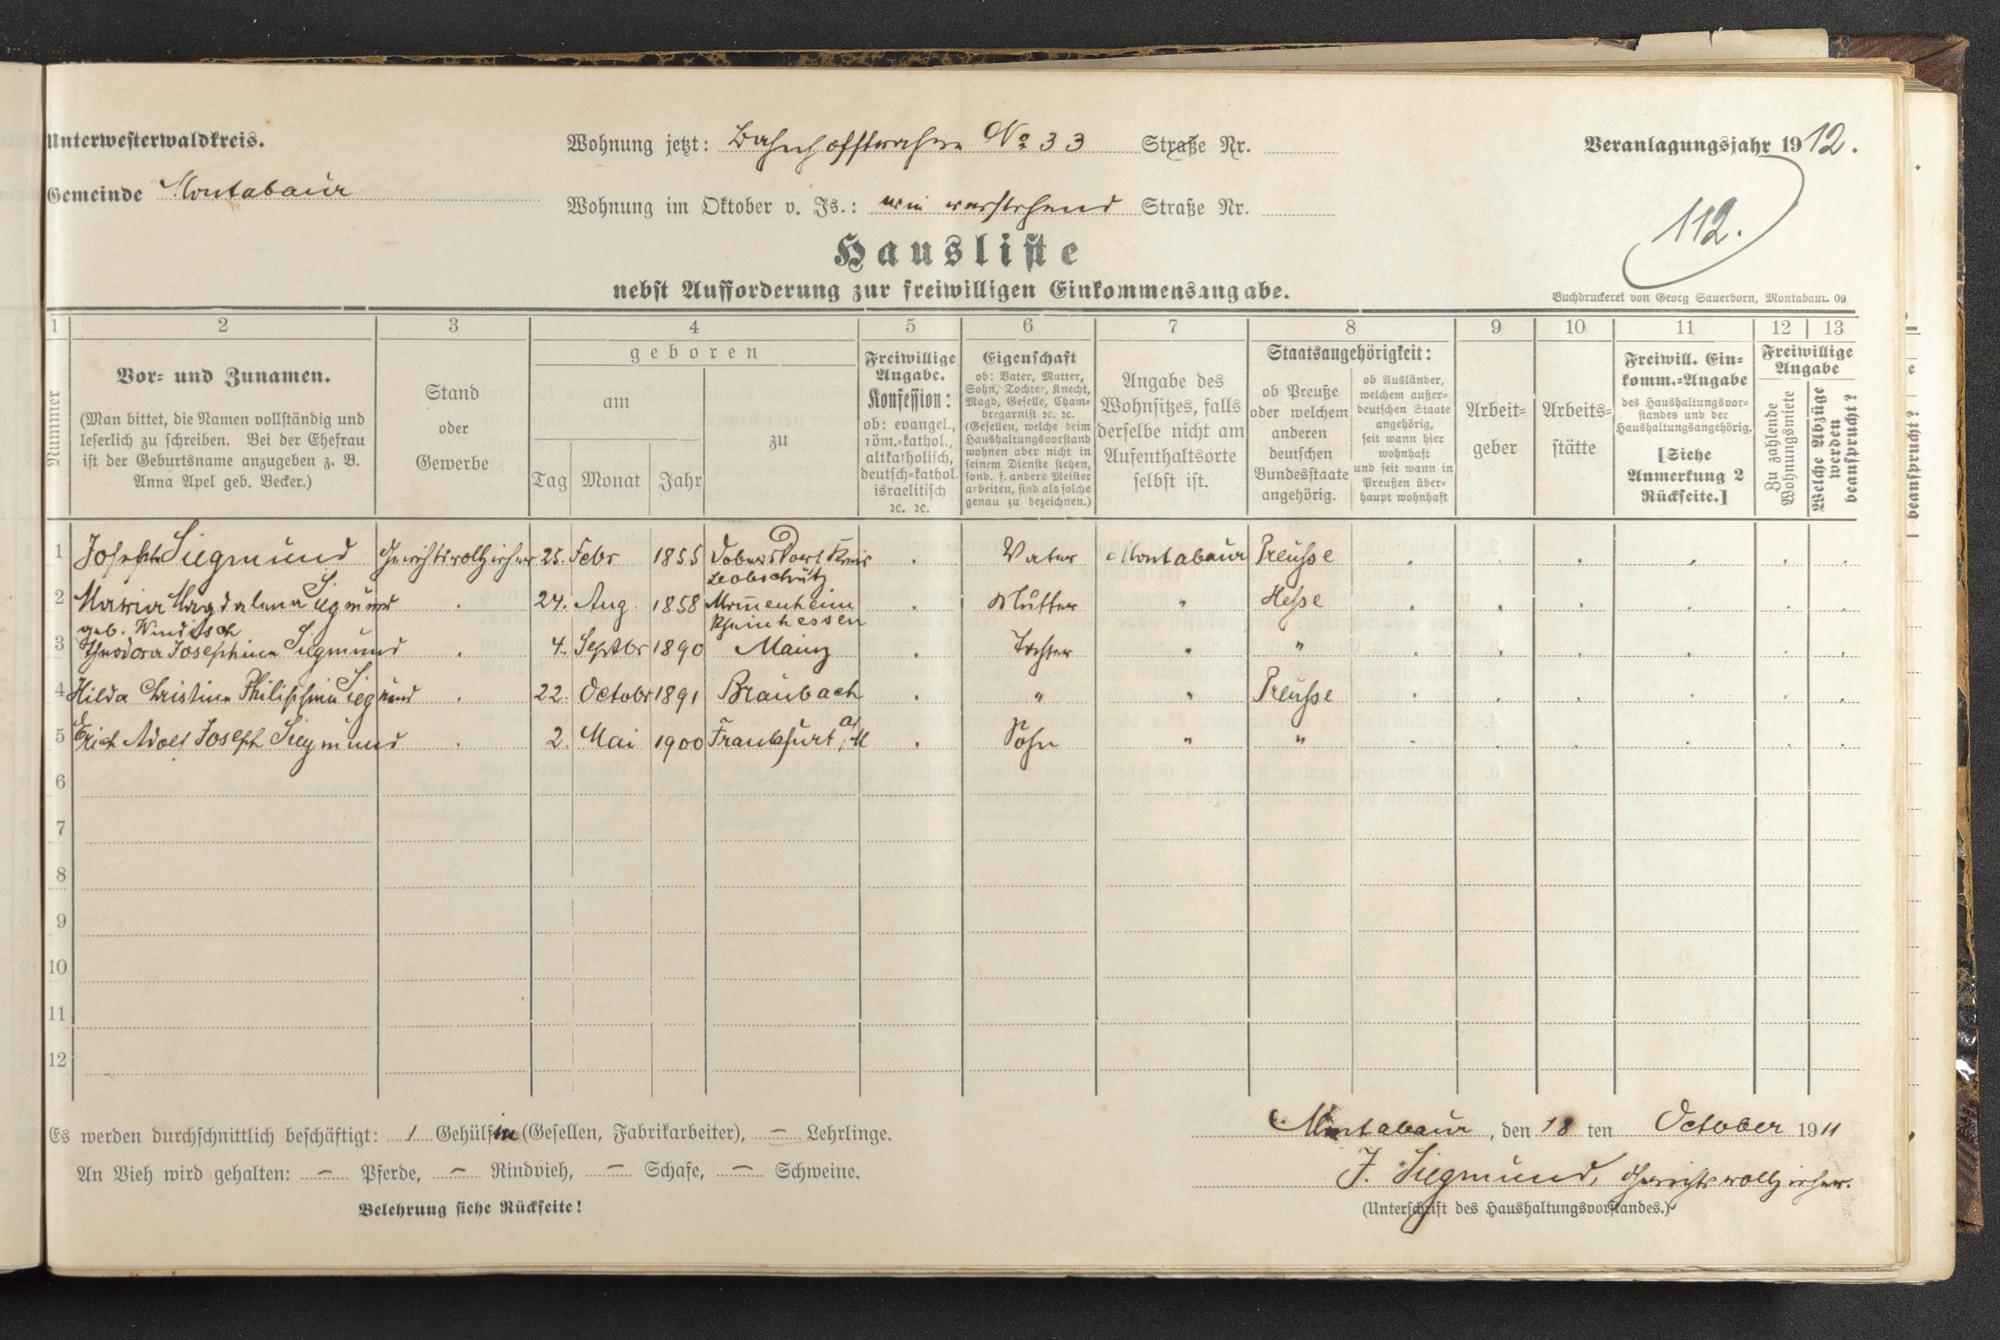 Unterwesterwaldkreis.
Gemeinde Montabaur
Wohnung jetzt: Bahnhofstrasse No 33 Straße Nr.
Wohnung im Oktober v. Js.: wie vorstehend Straße Nr.
Veranlagungsjahr 1912.
112.
Hausliste
nebst Aufforderung zur freiwilligen Einkommensangabe.
Buchdruckerei von Georg Sauerborn, Montabaur. 09
1 2 3 4 5 6 7 8 9 10 11 12 13
Nummer
Vor- und Zunamen.
(Man bittet, die Namen vollständig und
leserlich zu schreiben. Bei der Ehefrau
ist der Geburtsname anzugeben z. B.
Anna Apel geb. Becker.)
Stand
oder
Gewerbe
geboren
am
Tag Monat Jahr
zu
Freiwillige
Angabe.
Konfession:
ob: evangel.,
röm.-kathol.,
altkatholisch,
deutsch-kathol.
israelitisch
2c. 2c.
Eigenschaft
ob: Vater, Mutter,
Sohn, Tochter, Knecht,
Magd, Geselle, Cham-
bregarnist 2c. 2c.
(Gesellen, welche beim
Haushaltungsvorstand
wohnen aber nicht in
seinem Dienste stehen,
sond. f. andere Meister
arbeiten, sind als solche
genau zu bezeichnen.)
Angabe des
Wohnsitzes, falls
derselbe nicht am
Aufenthaltsorte
selbst ist.
Staatsangehörigkeit:
ob Preuße
oder welchem
anderen
deutschen
Bundesstaate
angehörig.
ob Ausländer,
welchem außer-
deutschen Staate
angehörig,
seit wann hier
wohnhaft
und seit wann in
Preußen über-
haupt wohnhaft
Arbeit-
geber
Arbeits-
stätte
Freiwill. Ein-
komm.-Angabe
des Haushaltungsvor-
standes und der
Haushaltungsangehörig.
[Siehe
Anmerkung 2
Rückseite.]
Freiwillige
Angabe
Zu zahlende
Wohnungsmiete
Welche Abzüge
werden
beansprucht?
1 Joseph Siegmund Gerichtsvollzieher 25. Febr 1855 Kreis Leobschütz Vater Montabaur Preuße
2 Maria Magdalena Siegmund geb. Windisch 24. Aug 1858 Rheinhessen Mutter " Hesse
3 Theodora Josephine Siegmund 4. Septbr 1890 Mainz Tochter " "
4 Hilda Christine Philippine Siegmund 22. Octobr 1891 Braubach " " Preuße
5 Erich Adolf Joseph Siegmund 2. Mai 1900 Frankfurt a/M Sohn " "
6
7
8
9
10
11
12
Es werden durchschnittlich beschäftigt: 1 Gehülfin (Gesellen, Fabrikarbeiter), – Lehrlinge.
An Vieh wird gehalten: – Pferde, – Rindvieh, – Schafe, – Schweine.
Belehrung siehe Rückseite!
Montabaur, den 18 ten October 1911
J. Siegmund, Gerichtsvollzieher.
(Unterschrift des Haushaltungsvorstandes.)